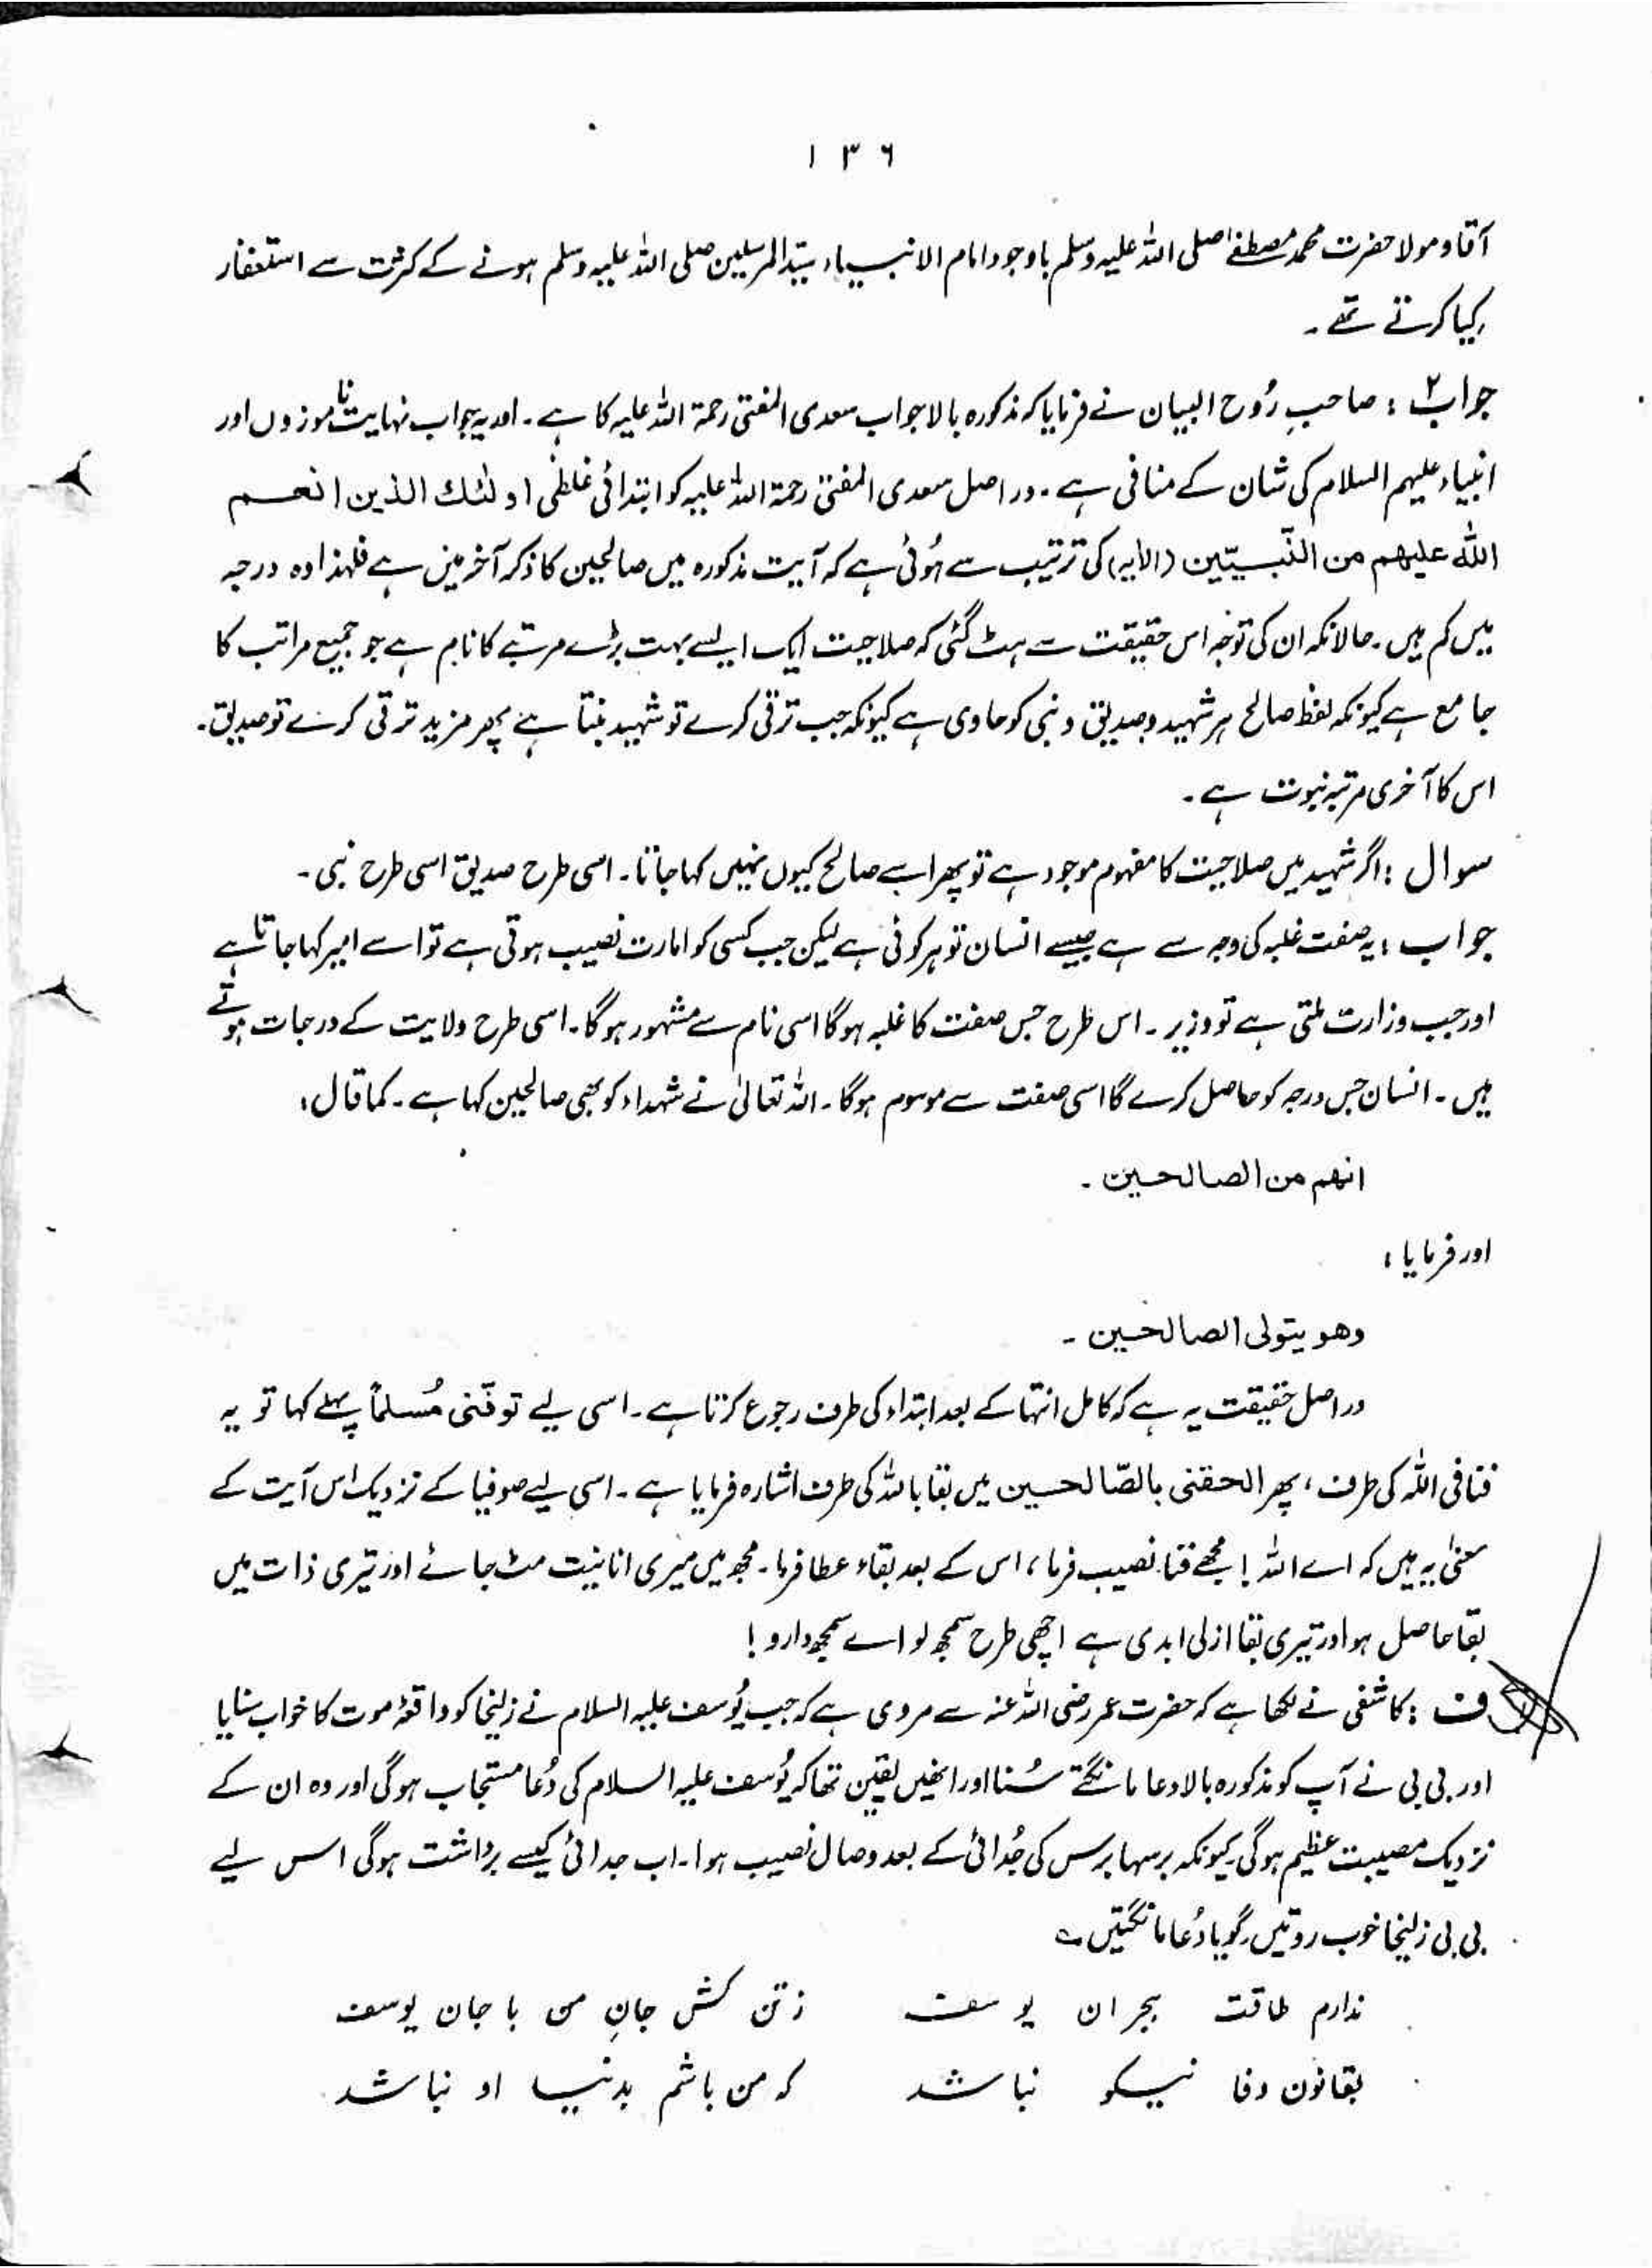 ۱۳۶
آقا و مولا حضرت محمد مصطفےٰ صلی اللہ علیہ وسلم باوجود امام الانبیاء سیّد المرسلین صلی اللہ علیہ وسلم ہونے کے کثرت سے استغفار
کیا کرتے تھے۔
جواب ۲ : صاحبِ رُوح البیان نے فرمایا کہ مذکورہ بالا جواب سعدی المفتی رحمۃ اللہ علیہ کا ہے۔ اور یہ جواب نہایت نا موزوں اور
انبیاء علیہم السلام کی شان کے منافی ہے۔ دراصل سعدی المفتی رحمۃ اللہ علیہ کو ابتدائی غلطی اولٰئك الذین انعم
اللہ علیھم من النّبییّن (الایہ) کی ترتیب سے ہُوئی ہے کہ آیت مذکورہ میں صالحین کا ذکر آخر میں ہے فلہٰذا وہ درجہ
میں کم ہیں۔ حالانکہ ان کی توجہ اس حقیقت سے ہٹ گئی کہ صلاحیت ایک ایسے بہت بڑے مرتبے کا نام ہے جو جمیع مراتب کا
جامع ہے کیونکہ لفظ صالح ہر شہید و صدیق و نبی کو حاوی ہے کیونکہ جب ترقی کرے تو شہید بنتا ہے پھر مزید ترقی کرے تو صدیق۔
اس کا آخری مرتبہ نبوت ہے۔
سوال : اگر شہید میں صلاحیت کا مفہوم موجود ہے تو پھر اسے صالح کیوں نہیں کہا جاتا۔ اسی طرح صدیق اسی طرح نبی۔
جواب : یہ صفت غلبہ کی وجہ سے ہے جیسے انسان تو ہر کوئی ہے لیکن جب کسی کو امارت نصیب ہوتی ہے تو اسے امیر کہا جاتا ہے
اور جب وزارت ملتی ہے تو وزیر۔ اس طرح جس صفت کا غلبہ ہوگا اسی نام سے مشہور ہوگا۔ اسی طرح ولایت کے درجات ہوتے
ہیں۔ انسان جس درجہ کو حاصل کرے گا اسی صفت سے موسوم ہوگا۔ اللہ تعالیٰ نے شہداء کو بھی صالحین کہا ہے۔ کما قال :
انھم من الصالحین۔
اور فرمایا :
وھو یتولی الصالحین۔
دراصل حقیقت یہ ہے کہ کامل انتہا کے بعد ابتداء کی طرف رجوع کرتا ہے۔ اسی لیے توفّنی مُسلماً پہلے کہا تو یہ
فنا فی اللہ کی طرف، پھر الحقنی بالصّالحین میں بقا باللہ کی طرف اشارہ فرمایا ہے۔ اسی لیے صوفیا کے نزدیک اس آیت کے
معنیٰ یہ ہیں کہ اے اللہ ! مجھے فنا نصیب فرما، اس کے بعد بقاء عطا فرما۔ مجھ میں میری انانیت مٹ جائے اور تیری ذات میں
بقا حاصل ہو اور تیری بقا ازلی ابدی ہے اچھی طرح سمجھ لو اے سمجھدارو !
ف : کاشفی نے لکھا ہے کہ حضرت عمر رضی اللہ عنہ سے مروی ہے کہ جب یُوسف علیہ السلام نے زلیخا کو واقعۂ موت کا خواب سنایا
اور بی بی نے آپ کو مذکورہ بالا دعا مانگتے سُنا اور انھیں یقین تھا کہ یُوسف علیہ السلام کی دُعا مستجاب ہوگی اور وہ ان کے
نزدیک مصیبت عظیم ہوگی کیونکہ برسہا برس کی جُدائی کے بعد وصال نصیب ہوا۔ اب جدائی کیسے برداشت ہوگی اس لیے
بی بی زلیخا خوب روئیں گویا دُعا مانگتیں ؎
ندارم طاقت ہجران یوسف زتن کش جانِ من با جان یوسف
بقانون وفا نیکو نباشد کہ من باشم بدنیا او نباشد